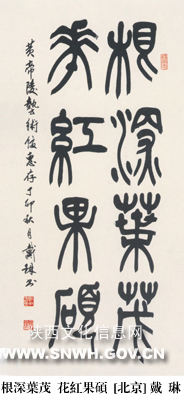 根深葉茂
花紅果碩
黄帝陵藝術館惠存丁卯秋月戴琳書
陕西文化信息网
WWW.SNWH.GOV.CN
根深葉茂 花紅果碩 [北京] 戴 琳